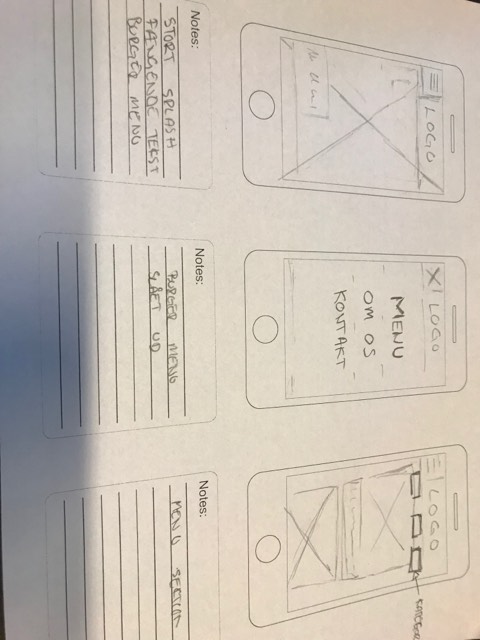 LOGO
Notes:
START SPLASH
FANGENDE TEKST
BURGER MENU
X | LOGO
MENU
OM OS
KONTAKT
Notes:
BURGER MENU
SLÅET UD
LOGO
Notes:
MENU SECTION